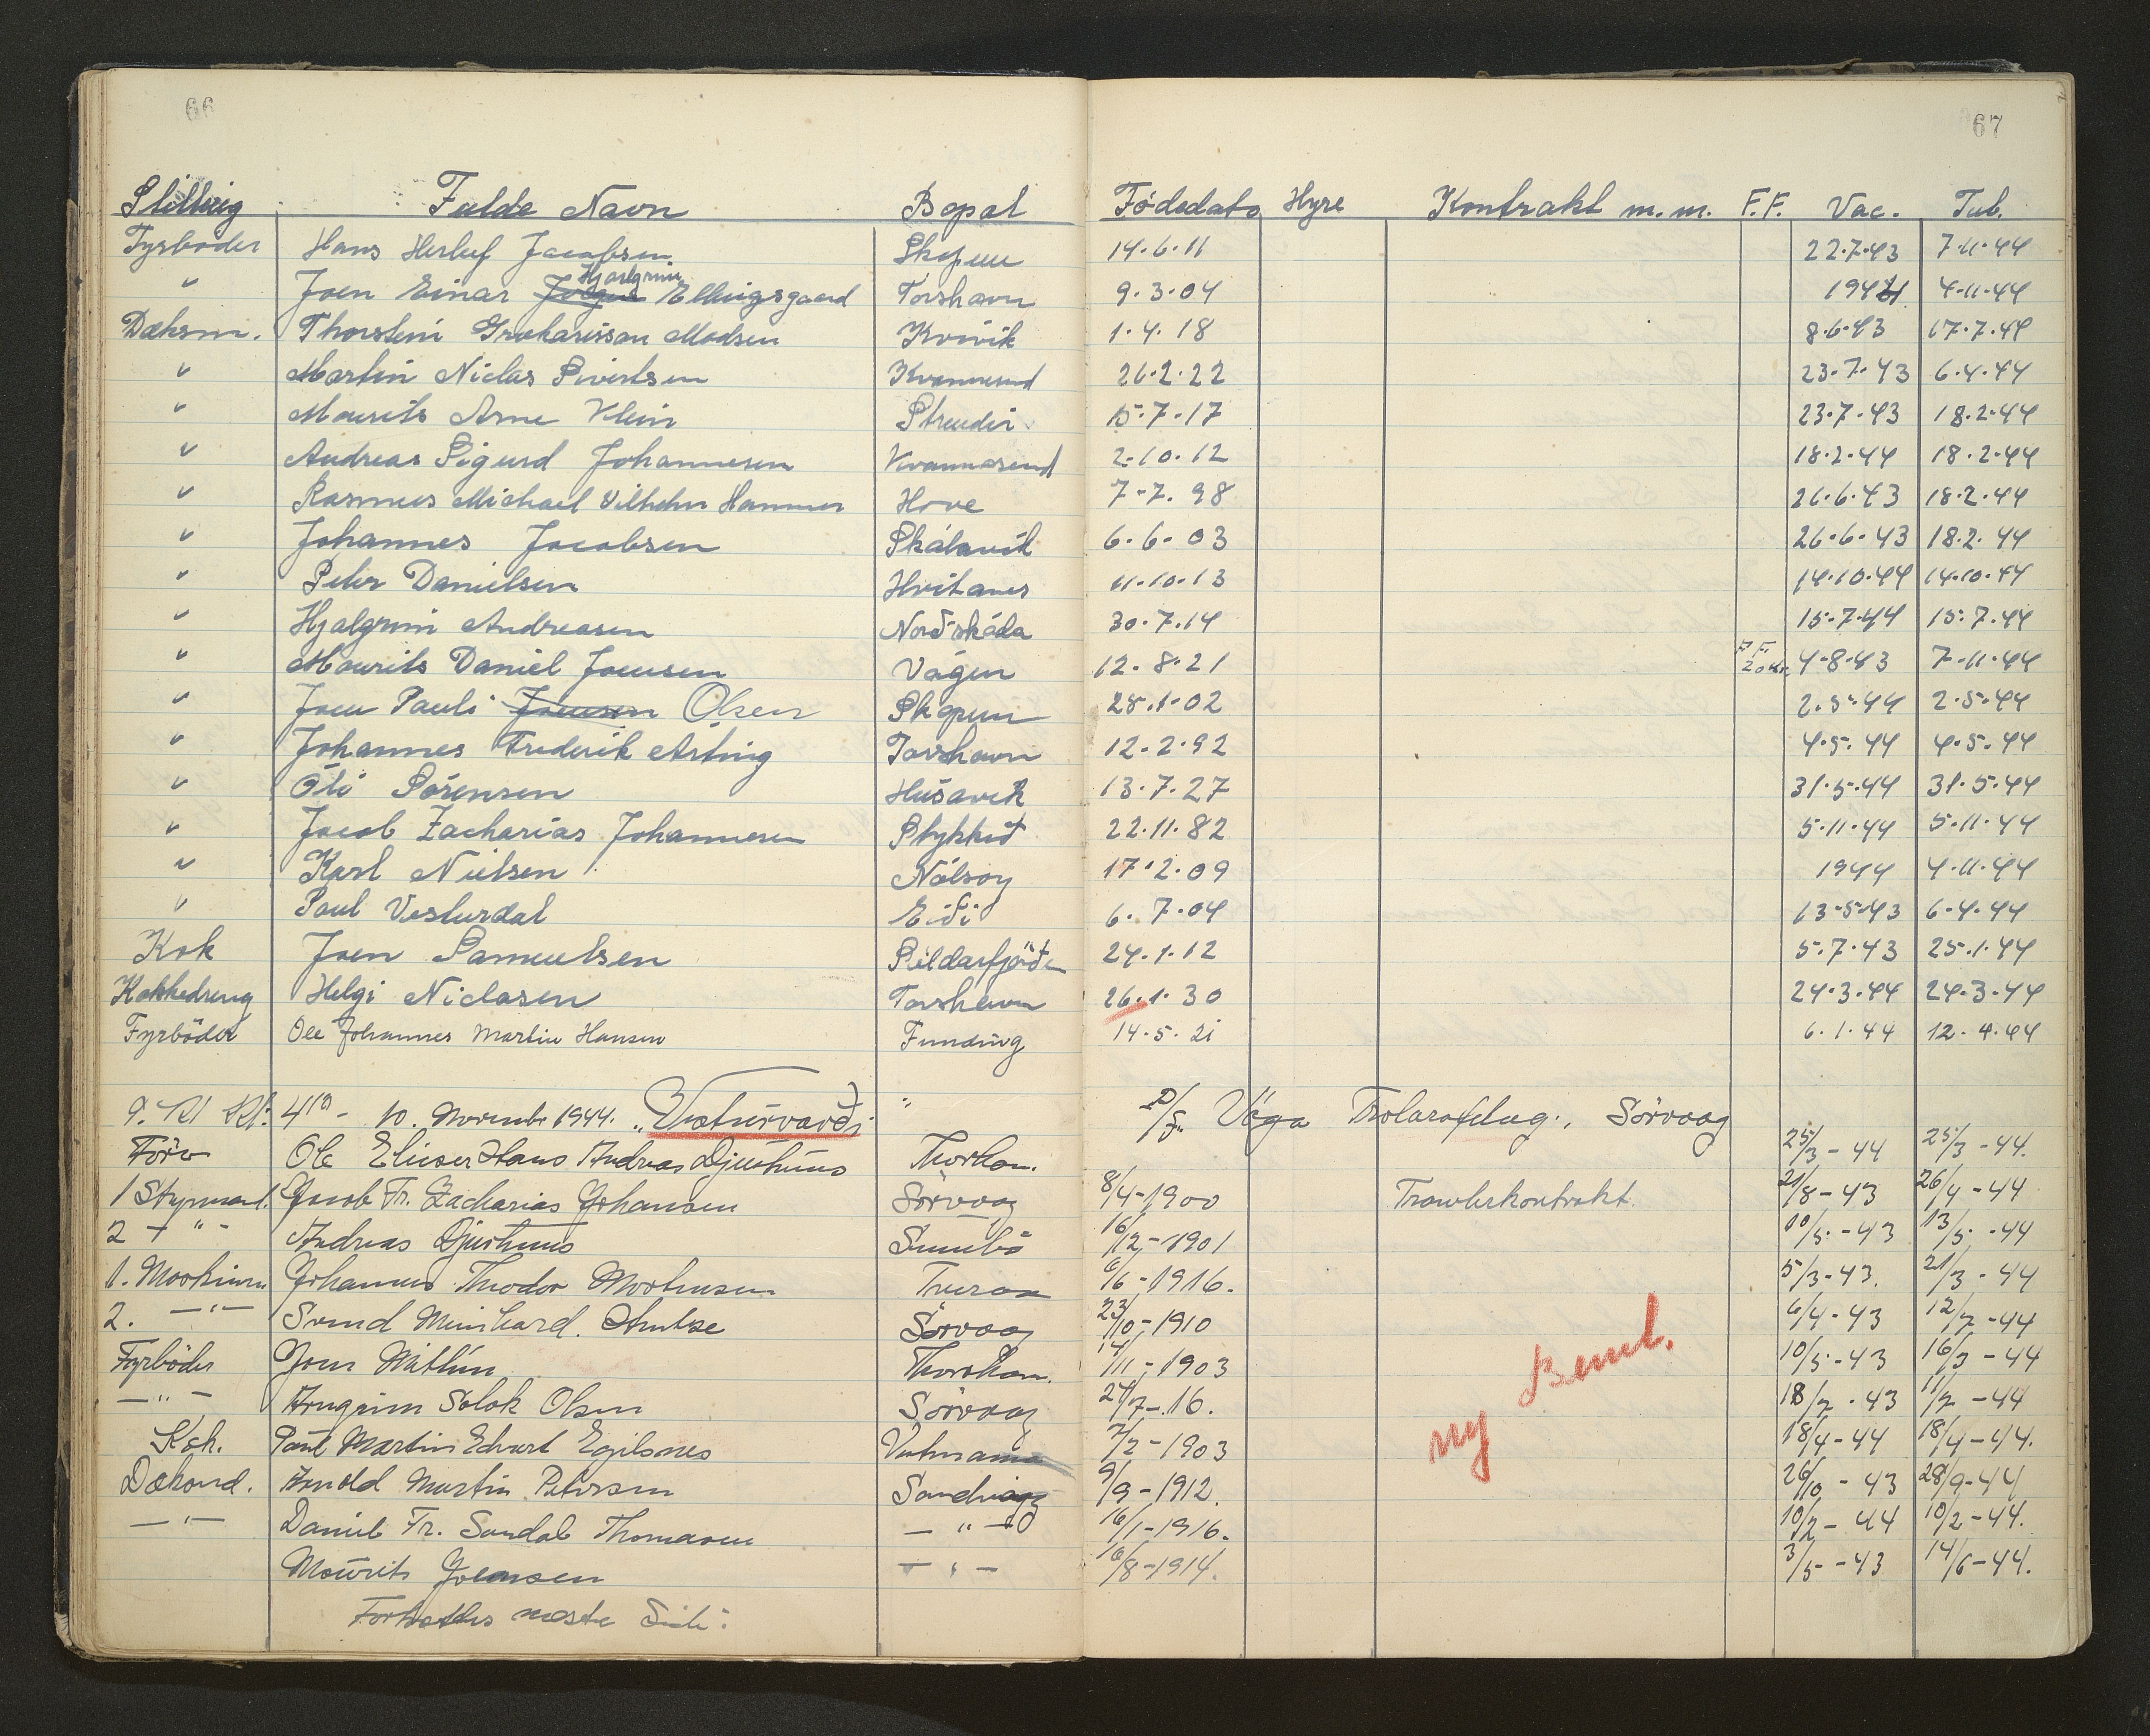 66
67
Stilling Fulde Navn Bopæl Fødedato Hyre Kontrakt m.m. F.F. Vac. Tub.
Fyrbøder Hans Herluf Jacobsen Skopun 14.6.11 22.7.43 7.11.44
" Joen Einar Hjalgrim Ellingsgaard Torshavn 9.3.04 1944 4.11.44
Dæksm. Thorstein Madsen Kvivik 1.4.18 8.6.43 17.7.44
" Martin Niclas Sivertsen Kvannesund 26.2.22 23.7.43 6.4.44
" Mourits Arne Klein Strendir 15.7.17 23.7.43 18.2.44
" Andreas Sigurd Johannesen Kvannasund 2.10.12 18.2.44 18.2.44
" Rasmus Michael Vilhelm Hammer Hove 7.7.98 26.6.43 18.2.44
" Johannes Jacobsen Skálavík 6.6.03 26.6.43 18.2.44
" Peter Danielsen Hvitanes 11.10.13 14.10.44 14.10.44
" Hjalgrim Andreasen Norðskáda 30.7.14 15.7.44 15.7.44
" Mourits Daniel Joensen Vágur 12.8.21 F.F. 20 kr. 4.8.43 7.11.44
" Joen Pauli Joensen Olsen Skopun 28.1.02 2.5.44 2.5.44
" Johannes Frederik Arting Torshavn 12.2.92 4.5.44 4.5.44
" Óli Sørensen Húsavík 13.7.27 31.5.44 31.5.44
" Jacob Zacharias Johannesen Stykkið 22.11.82 5.11.44 5.11.44
" Karl Nielsen Nólsoy 17.2.09 1944 4.11.44
" Poul Vesturdal Eiði 6.7.04 13.5.43 6.4.44
Kok Joen Samuelsen Sildarfjørðen 24.1.12 5.7.43 25.1.44
Kokkedreng Helgi Niclasen Torshavn 26.1.30 24.3.44 24.3.44
Fyrböder Ole Johannes Martin Hansen Funding 14.5.21 6.1.44 12.4.44
10. November 1944. "Vesturvarði" P/F. Vága Trolarafelag., Sörvaag
Förer Ole Elieser Hans Andreas Djurhuus Thorshavn. 25/3-44 25/3-44.
1 Styrmand. Jacob Fr. Zacharias Johansen Sörvaag 8/4-1900 Trawlerkontrakt. 21/8-43 26/4-44
2 -"- Andreas Djurhuus Sumbö 16/12-1901 10/5-43 13/5-44
1. Maskinm. Johannes Theodor Mortensen Tveraa 6/6-1916. 5/3-43. 21/3-44
2. -"- Svend Meinhard. Sörvaag 23/10-1910 6/4-43 12/7-44
Fyrböder Joen Thorshavn. 14/11-1903 10/5-43 16/3-44
-"- Arngrim Solok Olsen Sörvaag 24/7-16. 18/7-43 11/7-44
Kok. Paul Martin Edvart Egilsnes Vestmanna 7/2-1903 18/4-44 18/4-44.
Dækmd. Arnold Martin Petersen Sandvaag 9/9-1912. 26/10-43 28/9-44
-"- Daniel Fr. Sandal Thomasen -"- 16/1-1916. 10/2-44 10/2-44.
Mourits Joensen -"- 16/8-1914. 3/5-43 14/6-44.
Fortsættes næste Side:
ny Beml.